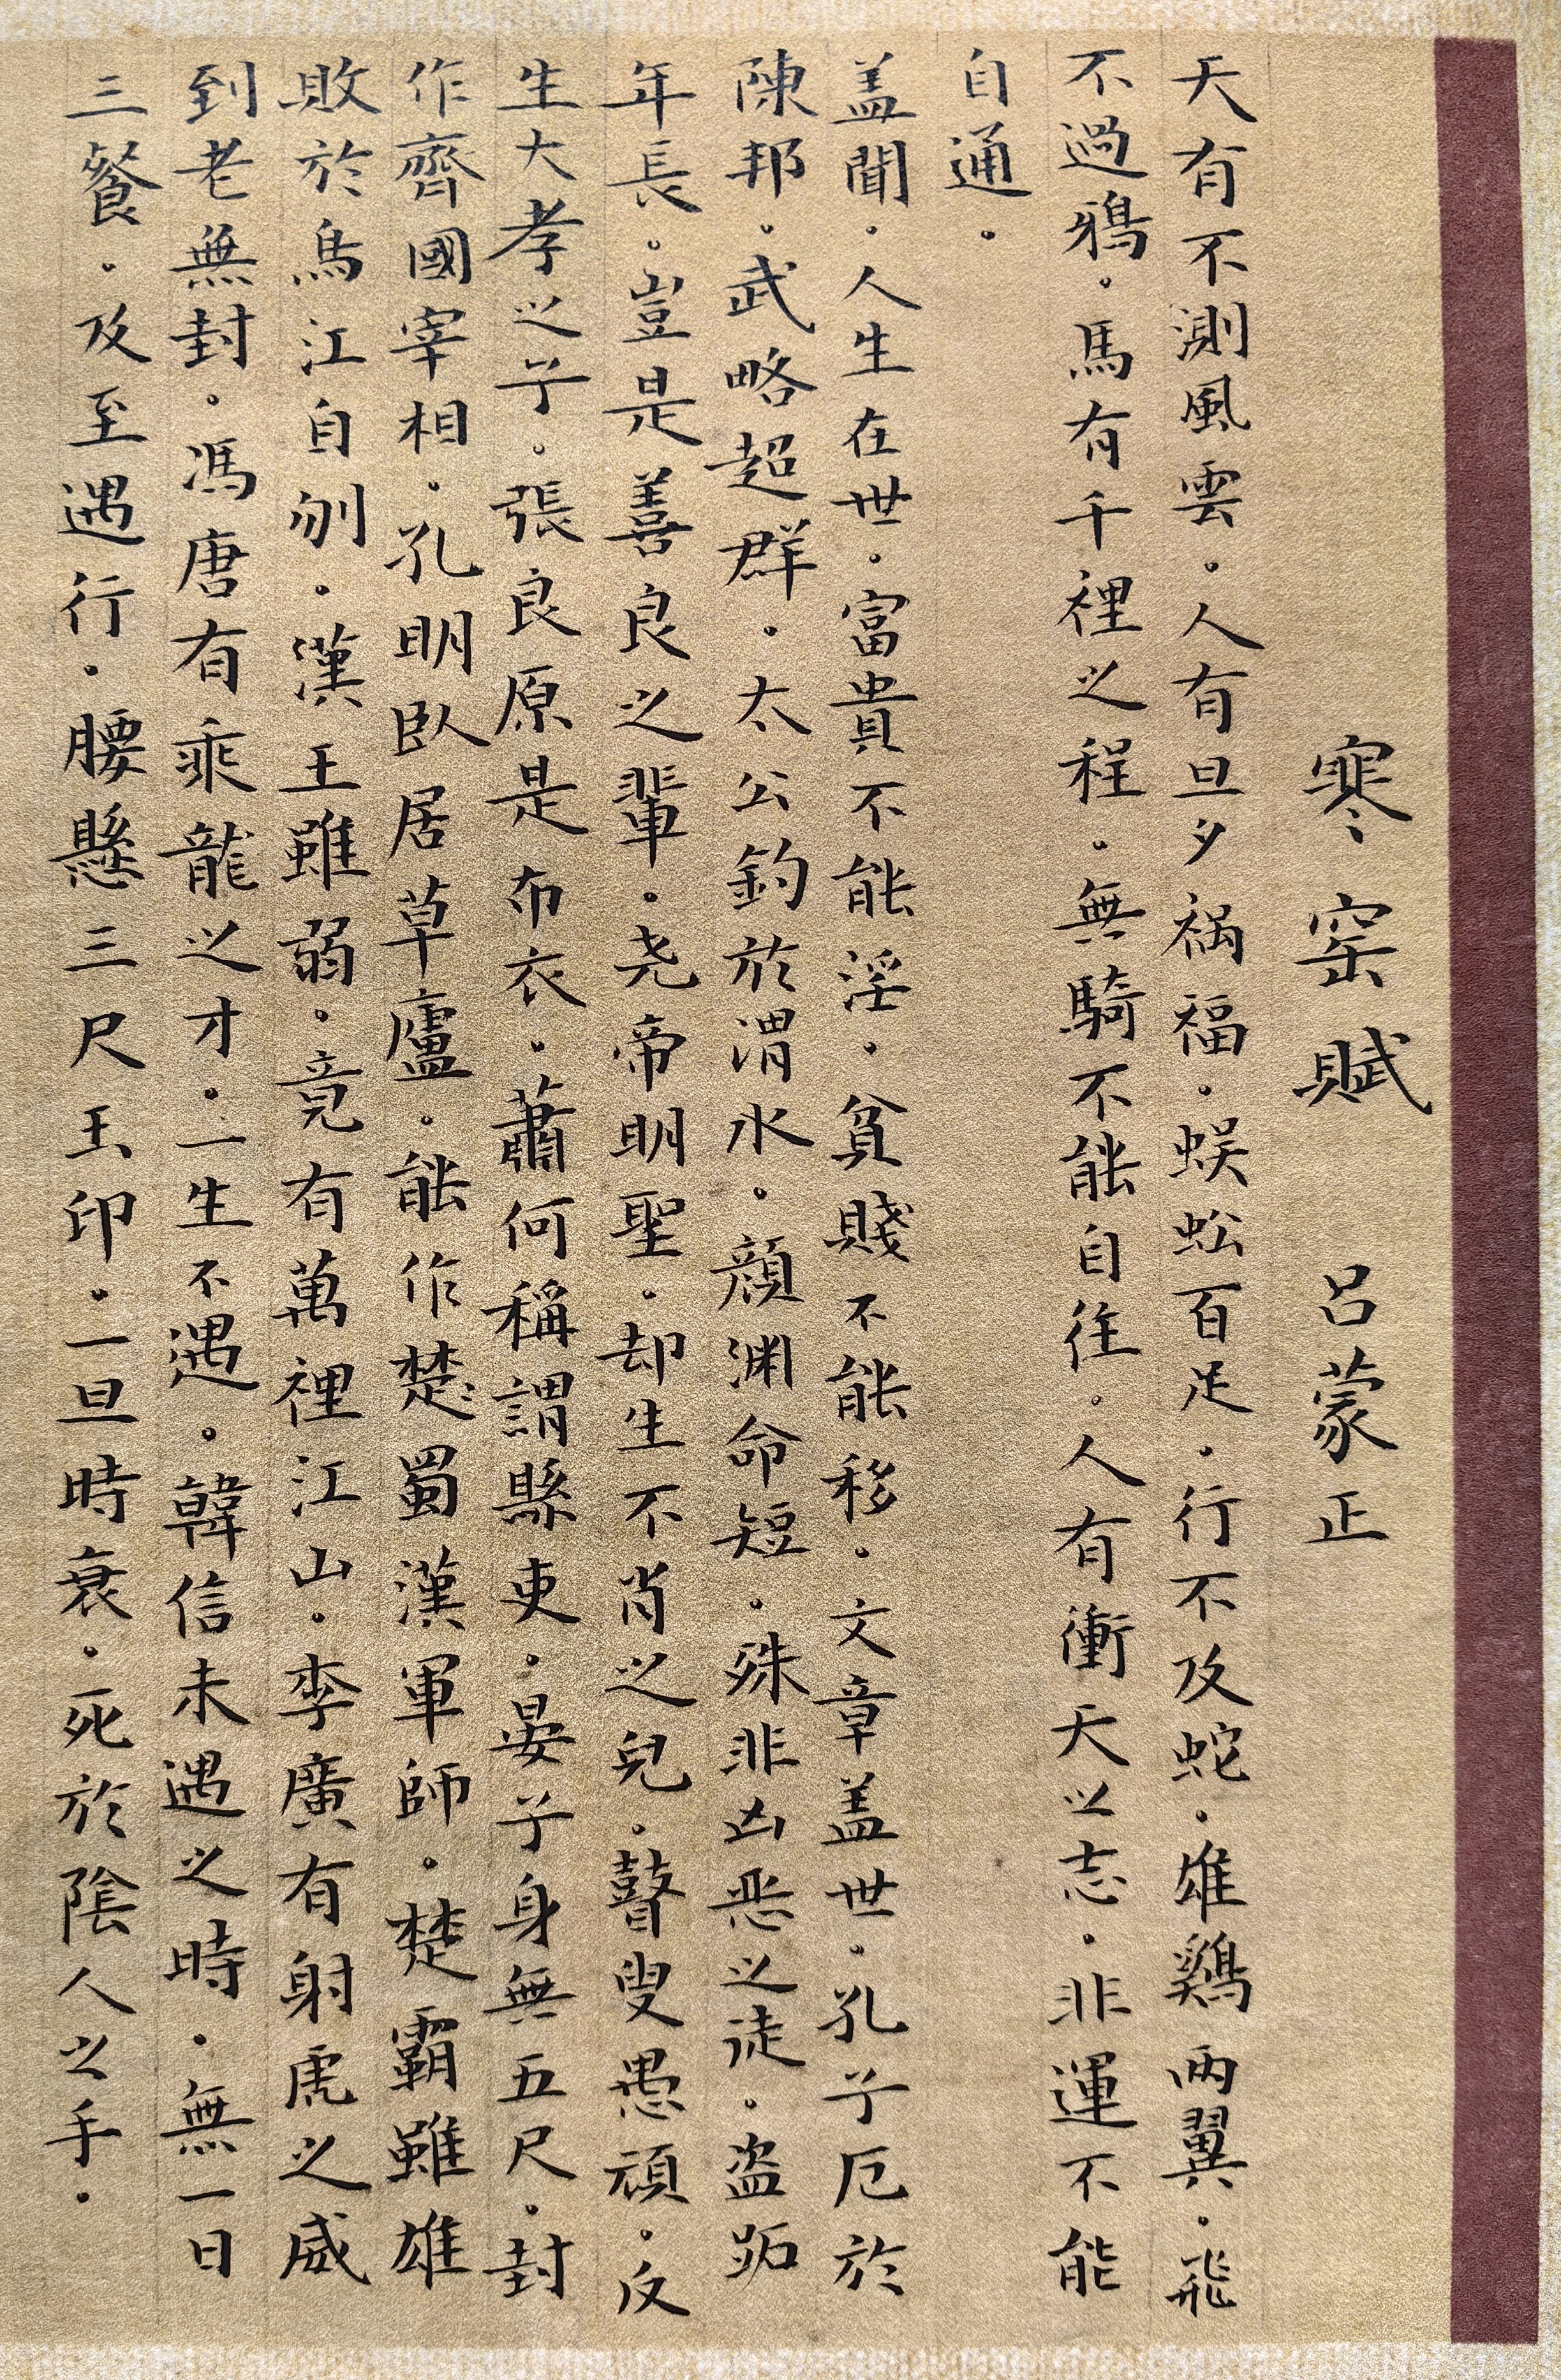 寒窑賦 呂蒙正
天有不測風雲。人有旦夕禍福。蜈蚣百足。行不及蛇。雄鷄兩翼。飛
不過鴉。馬有千裡之程。無騎不能自往。人有衝天之志。非運不能
自通。
盖聞。人生在世。富貴不能淫。貧賤不能移。文章盖世。孔子厄於
陳邦。武略超群。太公釣於渭水。顏渊命短。殊非凶恶之徒。盗跖
年長。豈是善良之輩。尧帝明聖。却生不肖之兒。瞽叟愚頑。反
生大孝之子。張良原是布衣。蕭何稱謂縣吏。晏子身無五尺。封
作齊國宰相。孔明臥居草廬。能作楚蜀漢軍師。楚霸雖雄
敗於烏江自刎。漢王雖弱。竟有萬裡江山。李廣有射虎之威
到老無封。馮唐有乘龍之才。一生不遇。韓信未遇之時。無一日
三餐。及至遇行。腰懸三尺玉印。一旦時衰。死於陰人之手。